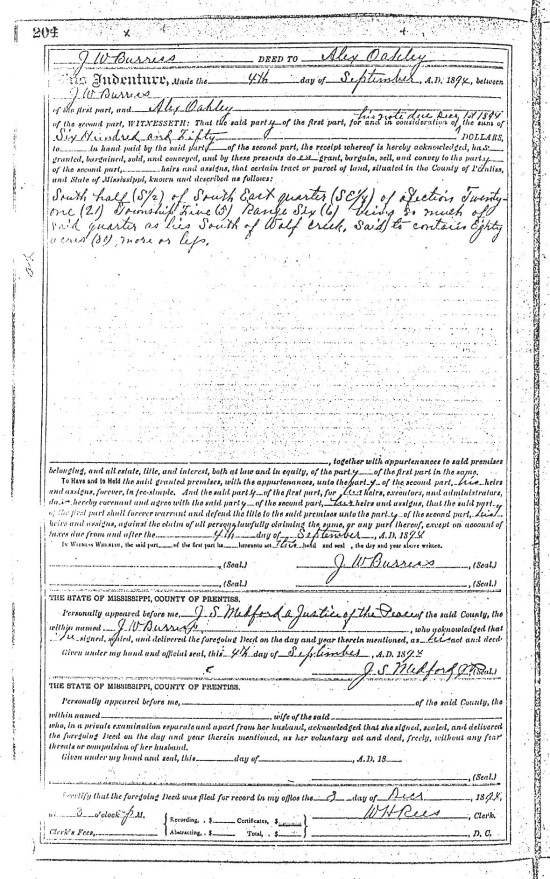 204
J W Burress DEED TO Alex Oakley
This Indenture, Made the 4th day of September, A.D. 1894, between
J W Burress
of the first part, and Alex Oakley
his note due Decr 1st 1894
of the second part, WITNESSETH: That the said party of the first part, for and in consideration of the sum of
Six Hundred and Fifty DOLLARS,
to in hand paid by the said part of the second part, the receipt whereof is hereby acknowledged, has
granted, bargained, sold, and conveyed, and by these presents does grant, bargain, sell, and convey to the party
of the second part, heirs and assigns, that certain tract or parcel of land, situated in the County of Prentiss,
and State of Mississippi, known and described as follows:
South half (S/2) of South East quarter (SE/4) of Section Twenty-
one (21) Township Five (5) Range Six (6) being so much of
said quarter as lies South of Wolf Creek. Said to contain Eighty
acres more or less.
, together with appurtenances to said premises
belonging, and all estate, title, and interest, both at law and in equity, of the party of the first part in the same.
To Have and to Hold the said granted premises, with the appurtenances, unto the party of the second part, his heirs
and assigns, forever, in fee-simple. And the said party of the first part, for his heirs, executors, and administrators,
does hereby covenant and agree with the said party of the second part, his heirs and assigns, that the said party
of the first part shall forever warrant and defend the title to the said premises unto the party of the second part, his
heirs and assigns, against the claim of all persons lawfully claiming the same, or any part thereof, except on account of
taxes due from and after the 4th day of September 1894
IN WITNESS WHEREOF, the said part of the first part ha hereunto set his hand and seal, the day and year above written.
, (Seal.) J W Burress (Seal.)
, (Seal.) , (Seal.)
THE STATE OF MISSISSIPPI, COUNTY OF PRENTISS.
Personally appeared before me, J. S. Medford a Justice of the Peace of the said County, the
within named J W Burress, who acknowledged that
he signed, sealed, and delivered the foregoing Deed on the day and year therein mentioned, as his act and deed.
Given under my hand and official seal, this 4th day of September, A.D. 1894
J. S. Medford J.P. (Seal.)
THE STATE OF MISSISSIPPI, COUNTY OF PRENTISS.
Personally appeared before me, of the said County, the
within named , wife of the said
who, in a private examination separate and apart from her husband, acknowledged that she signed, sealed, and delivered
the foregoing Deed on the day and year therein mentioned, as her voluntary act and deed, freely, without any fear
threats or compulsion of her husband.
Given under my hand and seal, this day of , A.D. 18
, (Seal.)
I certify that the foregoing Deed was filed for record in my office the 3 day of Decr, 1894,
at 3 o'clock P M. Recording, . $ Certificates, $ W H Rees, Clerk.
Clerk's Fees, Abstracting, . $ Total, . $ D. C.